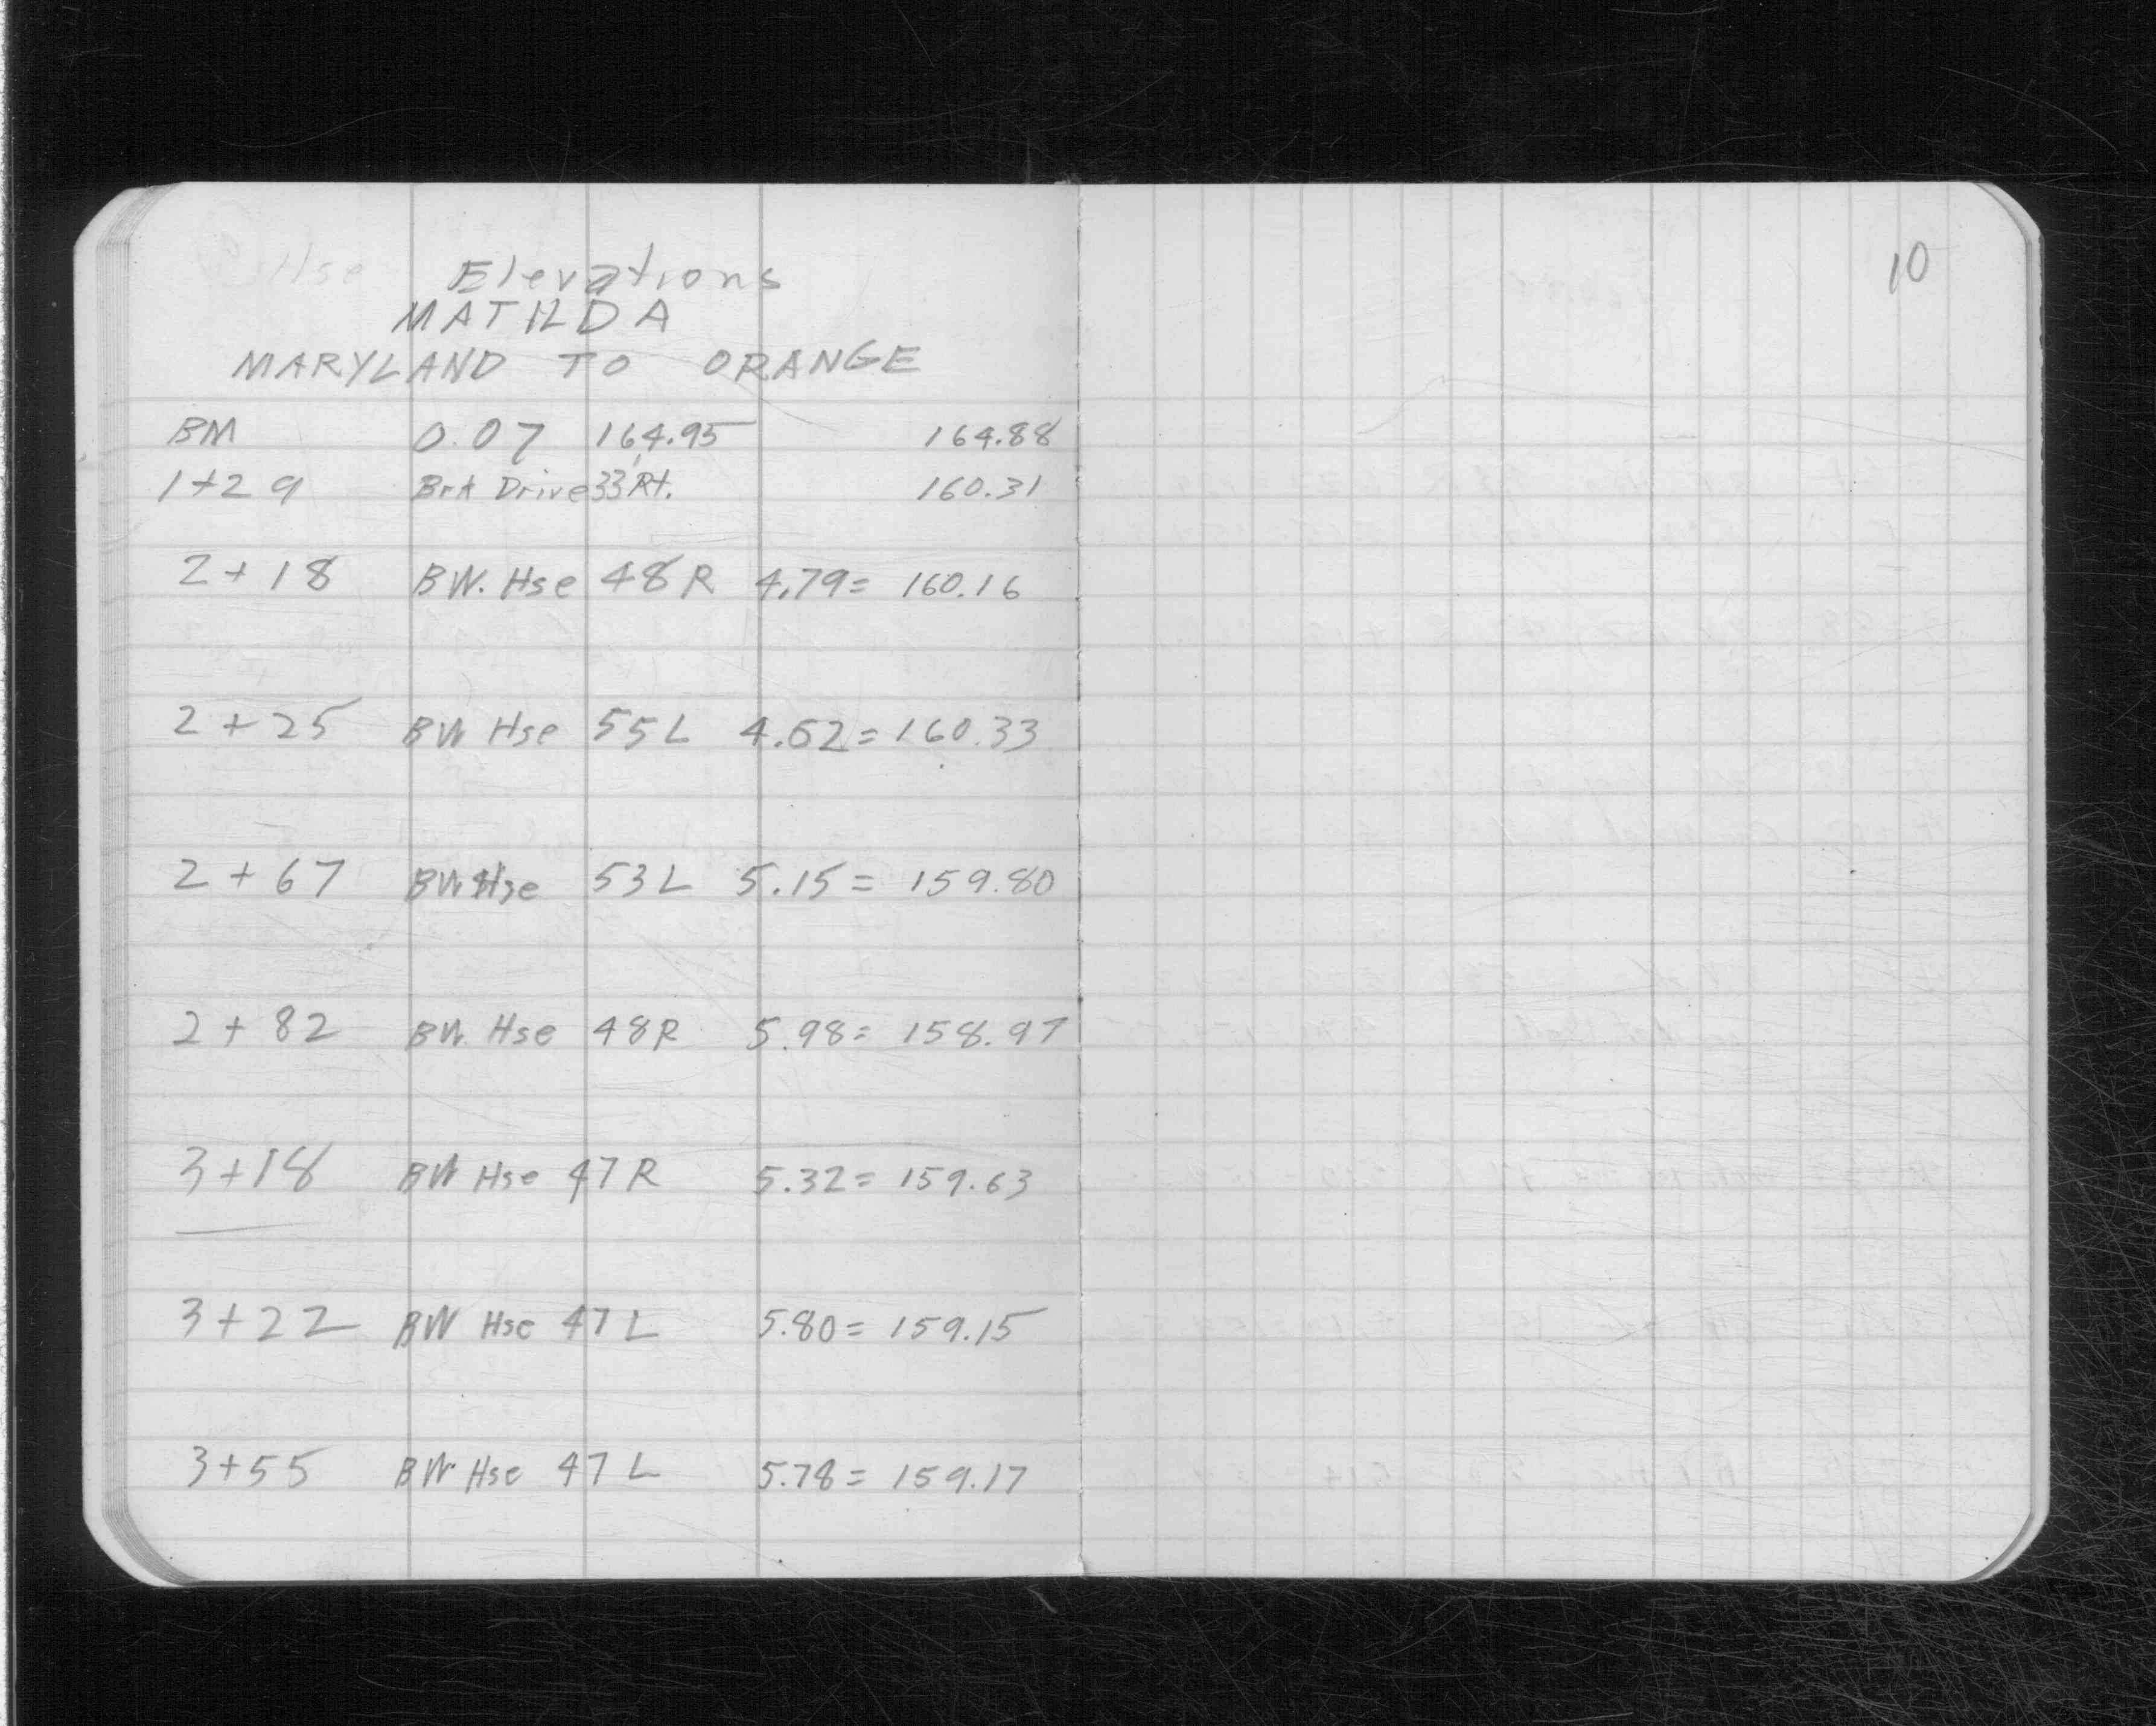 Hse Elevations
MATILDA
MARYLAND TO ORANGE
10
BM 0.07 164.95 164.88
1+29 Brk Drive 33' Rt. 160.31
2+18 BW. Hse 48R 4.79= 160.16
2+25 BW Hse 55L 4.62= 160.33
2+67 BW Hse 53L 5.15= 159.80
2+82 BW. Hse 48R 5.98= 158.97
3+18 BW Hse 47R 5.32= 159.63
3+22 BW Hse 47L 5.80= 159.15
3+55 BW Hse 47L 5.78= 159.17